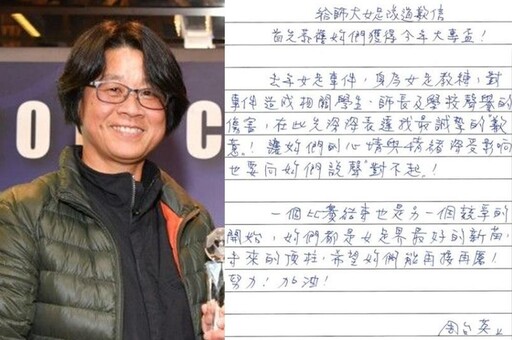 給師大女足隊道歉信
首先恭禧妳們獲得今年大專盃!
去年女足事件，身為女足教練，對
事件造成相關學生、師長及學校聲譽的
傷害，在此先深深表達我最誠摯的歉
意!讓妳們的心情與情緒深受影响
也要向妳們說聲"對不起"!
一個比賽結束也是另一個競爭的
開始，妳們都是女足界最好的新苗，
未來的頂柱，希望妳們能再接再厲!
努力!加油!
周台英
O
C